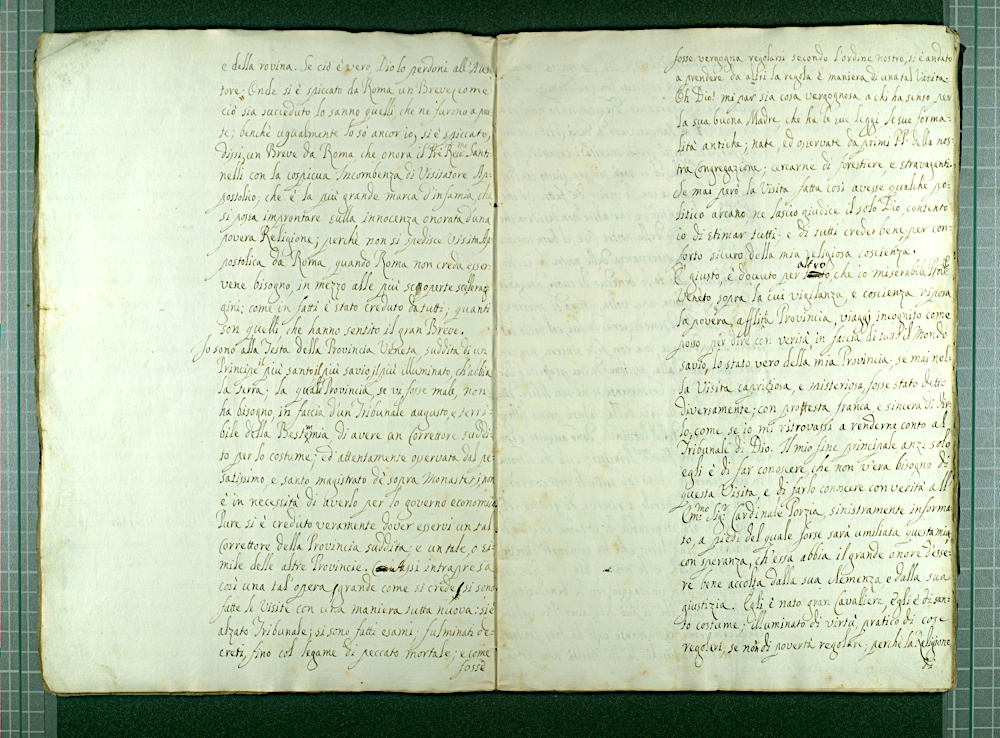 e della rovina. Se ciò è vero, Dio lo perdoni all'Aut-
tore. Onde si è spiccato da Roma un Breve, come
ciò sia succeduto lo sanno quelli che ne furono a par-
te; benchè ugualmente lo sò ancor io; si è spiccato,
dissi, un Breve da Roma, che onora il Santi-
nelli con la cospicua Incombenza di Visitatore Ap-
postolico; che è la più grande marca d'infamia, che
si possa improntare sulla innocenza onorata d'una
povera Religione; perchè non si spedisce Visita Ap-
postolica da Roma, quando Roma non creda esser-
vene bisogno, in mezzo alle più scoperte scelerag-
gini; come in fatti è stato creduto da tutti; quanti
son quelli che hanno sentito il gran Breve.
Io sono alla Testa della Provincia Veneta suddita di un
Principe il più santo, il più savio, il più illuminato, ch'abbia
la Terra; la quale Provincia, se vi fosse male, non
ha bisogno in faccia d'un Tribunale augusto, e terri-
bile della Bestemia di avere un Correttore suddi-
to per lo costume; ed attentamente osservata dal pe-
satissimo, e santo magistrato de sopra Monasterj, non
è in necessità di averlo per lo governo economico
Pure si è creduto veramente dover esservi un tal
Correttore della Provincia suddita, e un tale, o si-
mile delle altre Provincie. così intrapresa
così una tal'opera (grande come si crede) si sono
fatte le Visite con una maniera tutta nuova: si è
alzato Tribunale; si sono fatti esami, fulminati de-
creti, fino col legame di peccato mortale; e come
fosse
fosse vergogna regolarsi secondo l'ordine nostro, si è andato
a prendere da altri la regola è maniera di una tal Visita.
Oh Dio! mi par sia cosa vergognosa a chi ha senso per
la sua buona Madre, che ha le sue leggi le sue forma-
lità antiche; nate, ed osservate da primi PP. della nos-
tra Congregazione; cercarne di forestiere e stravaganti.
Se mai però la Visita fatta così avesse qualche po-
litico arcano, ne lascio giudice il solo Dio, contento
io di stimar tutti; e di tutti creder bene per con-
forto sicuro della mia religiosa coscienza.
altro
È giusto, è dovuto per che io miserabile
Veneto sopra la cui vigilanza, e coscienza riposa
la povera, afflitta Provincia, viaggi incognito come
posso, per dire con verità in faccia di tutto il Mondo
savio, lo stato vero della mia Provincia, se mai nel-
la Visita capricciosa, e misteriosa, fosse stato detto
diversamente; con protesta franca, e sincera di dir-
lo, come se io mi ritrovassi a renderne conto al
Tribunale di Dio. Il mio fine principale anzi solo
egli è di far conoscere, che non v'era bisogno di
questa Visita, e di farlo conoscere con verità all'
Emo Sigr Cardinale Porzia, sinistramente informa-
to, a piedi del quale forse sarà umiliata questa mia
con speranza, ch'essa abbia il grande onore d'esse-
re bene accolta dalla sua clemenza e dalla sua
giustizia. Egli è nato gran Cavaliere, Egli è di san-
to costume; illuminato di virtù, pratico di cose
regolari, se non di povertà regolare; perchè la Religione